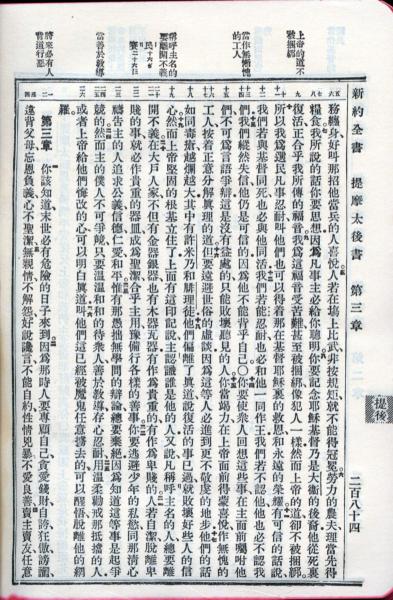 新約全書 提摩太後書 第三章 二百八十四
提後
上帝的道不
當作無慚愧
的工人
稱呼主名的
要離開不義
當善於教導
將來必有人
冒道行惡
務纏身好叫那招他當兵的人喜悅人若在塲上比武非按規矩就不能得冠冕勞力的農夫理當先得
糧食我所說的話你要思想因爲凡事主必給你聰明你要記念耶穌基督乃是大衛的後裔他從死裏
復活正合乎我所傳的福音我爲這福音受苦難甚至被捆綁像犯人一樣然而上帝的道卻不被捆綁
所以我爲選民凡事忍耐叫他們也可以得着那在基督耶穌裏的救恩和永遠的榮耀有可信的話說
我們若與基督同死也必與他同活我們若能忍耐也必和他一同作王我們若不認他他也必不認我
們我們縱然失信他仍是可信的因爲他不能背乎自己〇你要使衆人回想這些事在主面前囑咐他
們不可爲言語爭辯這是沒有益處的只能敗壞聽見的人你當竭力在上帝面前得蒙喜悅作無愧的
工人按着正意分解眞理的道但要遠避世俗的虛談因爲這等人必進到更不敬虔的地步他們的話
如同毒瘡越爛越大其中有許米乃和腓理徒他們偏離了眞道說復活的事已過就敗壞好些人的信
心然而上帝堅固的根基立住了上面有這印記說主認識誰是他的人又說凡稱呼主名的人總要離
開不義在大戶人家不但有金器銀器也有木器瓦器有作爲貴重的有作爲卑賤的人若自潔脫離卑
賤的事就必作貴重的器皿成爲聖潔合乎主用豫備行各樣的善事你要逃避少年的私慾同那清心
禱告主的人追求公義信德仁愛和平惟有那愚拙無學問的辯論總要棄絕因爲知道這等事是起爭
競的然而主的僕人不可爭競只要溫溫和和的待衆人善於教導存心忍耐用溫柔勸戒那抵擋的人
或者上帝給他們悔改的心可以明白眞道叫他們這已經被魔鬼任意擄去的可以醒悟脫離他的網
羅
第三章 你該知道末世必有危險的日子來到因爲那時人要專顧自己貪愛錢財自誇狂傲謗讟
違背父母忘恩負義心不聖潔無親情不解怨好說讒言不能自約性情兇暴不愛良善賣主賣友任意